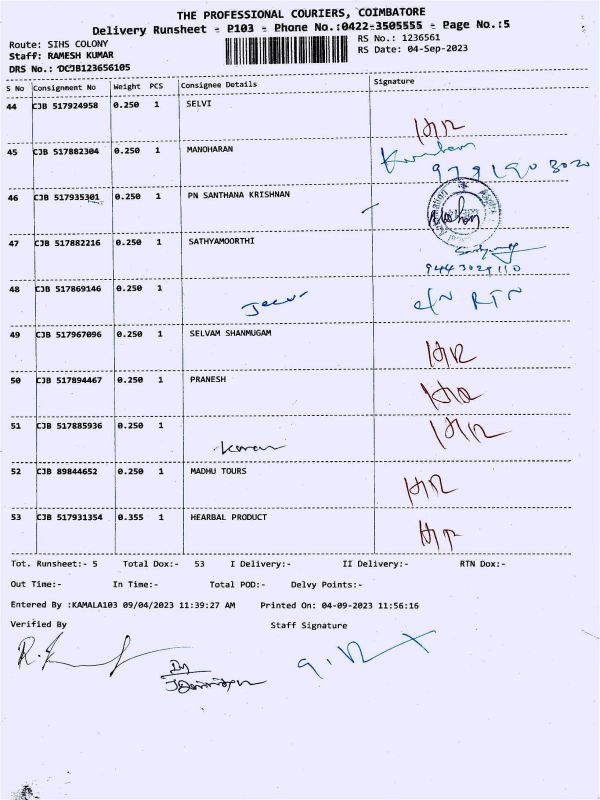 THE PROFESSIONAL COURIERS, COIMBATORE
Delivery Runsheet - P103 - Phone No.:0422-3505555 - Page No.:5
Route: SIHS COLONY
RS No.: 1236561
Staff: RAMESH KUMAR
RS Date: 04-Sep-2023
DRS No.: DCJB123656105
S No Consignment No Weight PCS Consignee Details Signature
44 CJB 517924958 0.250 1 SELVI
45 CJB 517882304 0.250 1 MANOHARAN
9791903020
46 CJB 517935301 0.250 1 PN SANTHANA KRISHNAN
47 CJB 517882216 0.250 1 SATHYAMOORTHI
9443029110
48 CJB 517869146 0.250 1
RTN
49 CJB 517967096 0.250 1 SELVAM SHANMUGAM
50 CJB 517894467 0.250 1 PRANESH
51 CJB 517885936 0.250 1
Karan
52 CJB 89844652 0.250 1 MADHU TOURS
53 CJB 517931354 0.355 1 HEARBAL PRODUCT
Tot. Runsheet:- 5 Total Dox:- 53 I Delivery:- II Delivery:- RTN Dox:-
Out Time:- In Time:- Total POD:- Delvy Points:-
Entered By :KAMALA103 09/04/2023 11:39:27 AM Printed On: 04-09-2023 11:56:16
Verified By Staff Signature